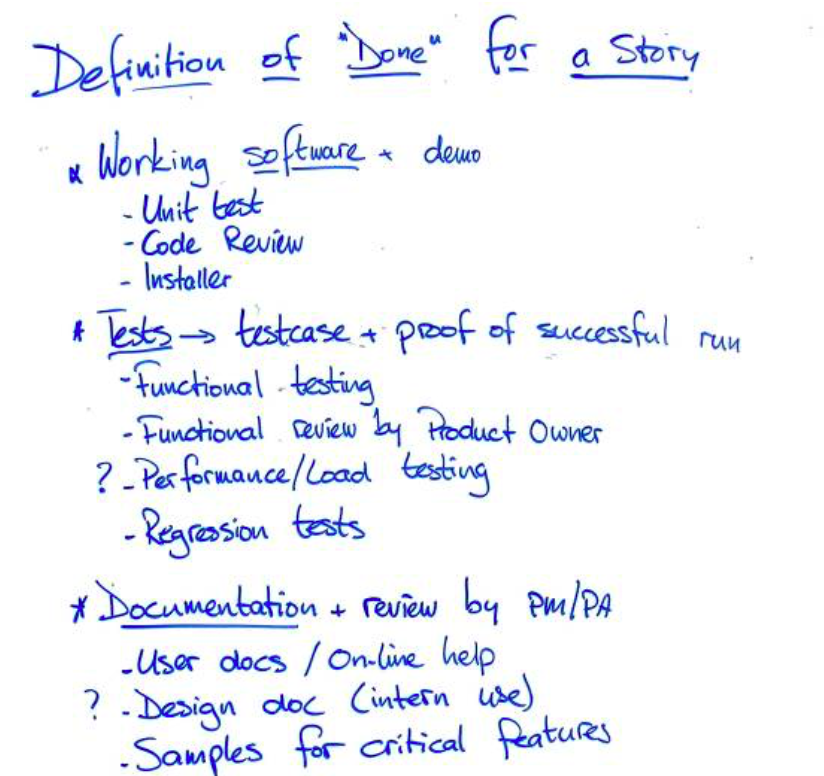 Definition of "Done" for a Story
* Working software + demo
- Unit test
- Code Review
- Installer
* Tests → testcase + proof of successful run
- Functional testing
- Functional review by Product Owner
? - Performance/Load testing
- Regression tests
* Documentation + review by PM/PA
- User docs / On-line help
? - Design doc (intern use)
- Samples for critical features